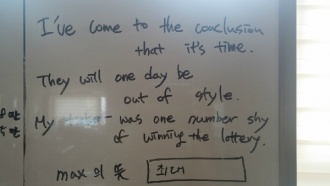 I've come to the conclusion
that it's time.
They will one day be
out of style.
My was one number shy
of winning the lottery.
max의 뜻 최대